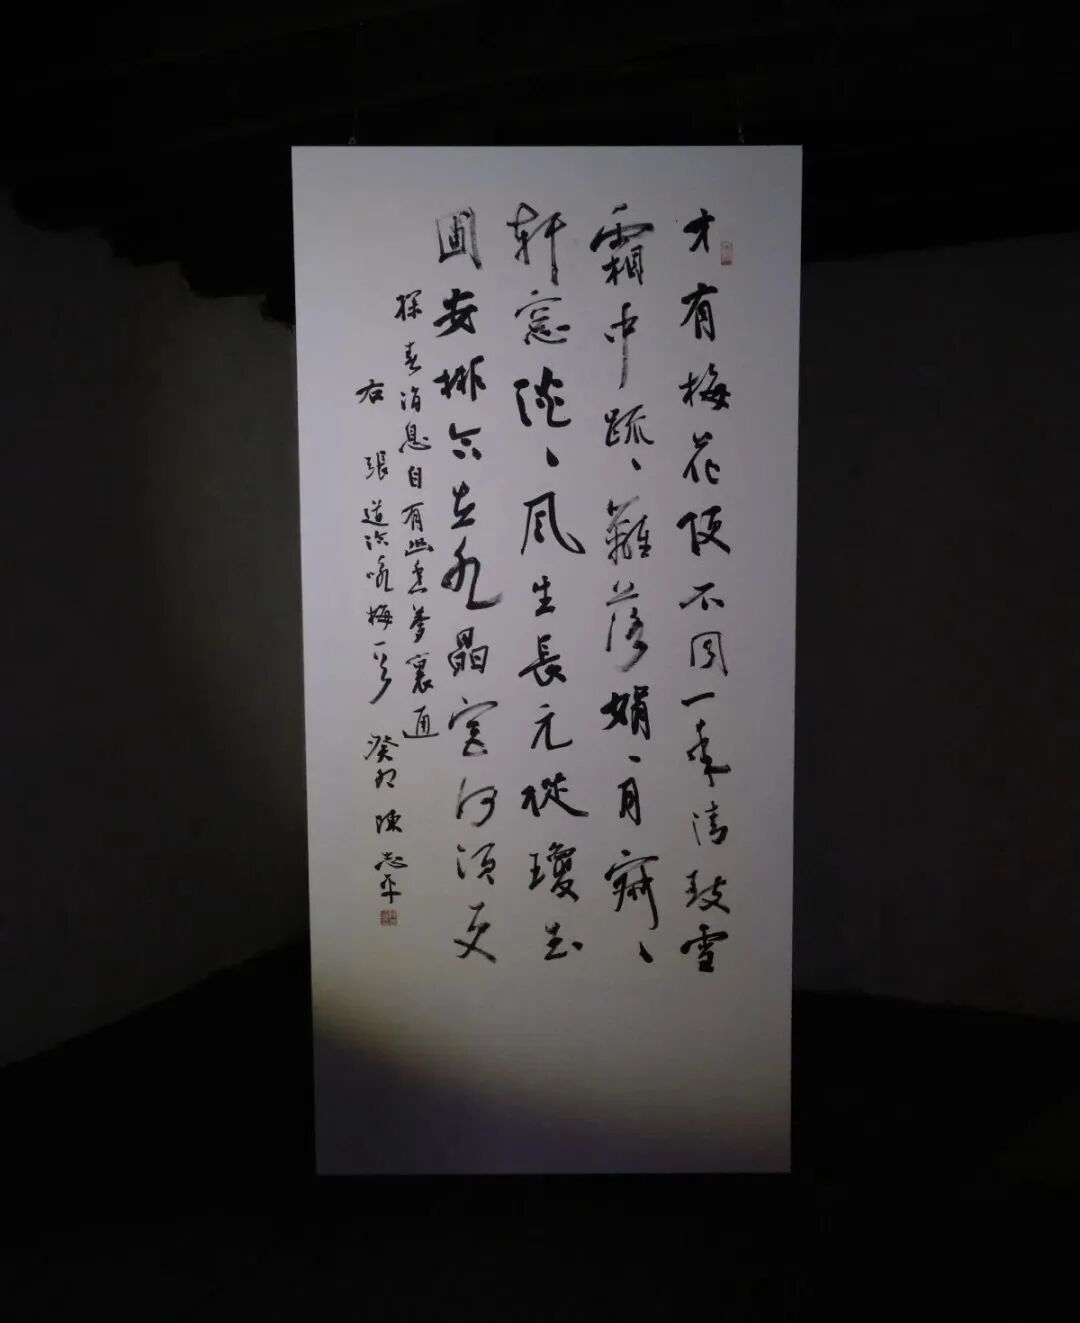 才有梅花便不同一年清致雪
霜中疏、籬落娟、月寂、
軒窓淡、風生長元從瓊玉
圃安排合在水晶宮何須更
探春消息自有幽香夢裏通
右 張道洽咏梅一首 癸卯 陳志平